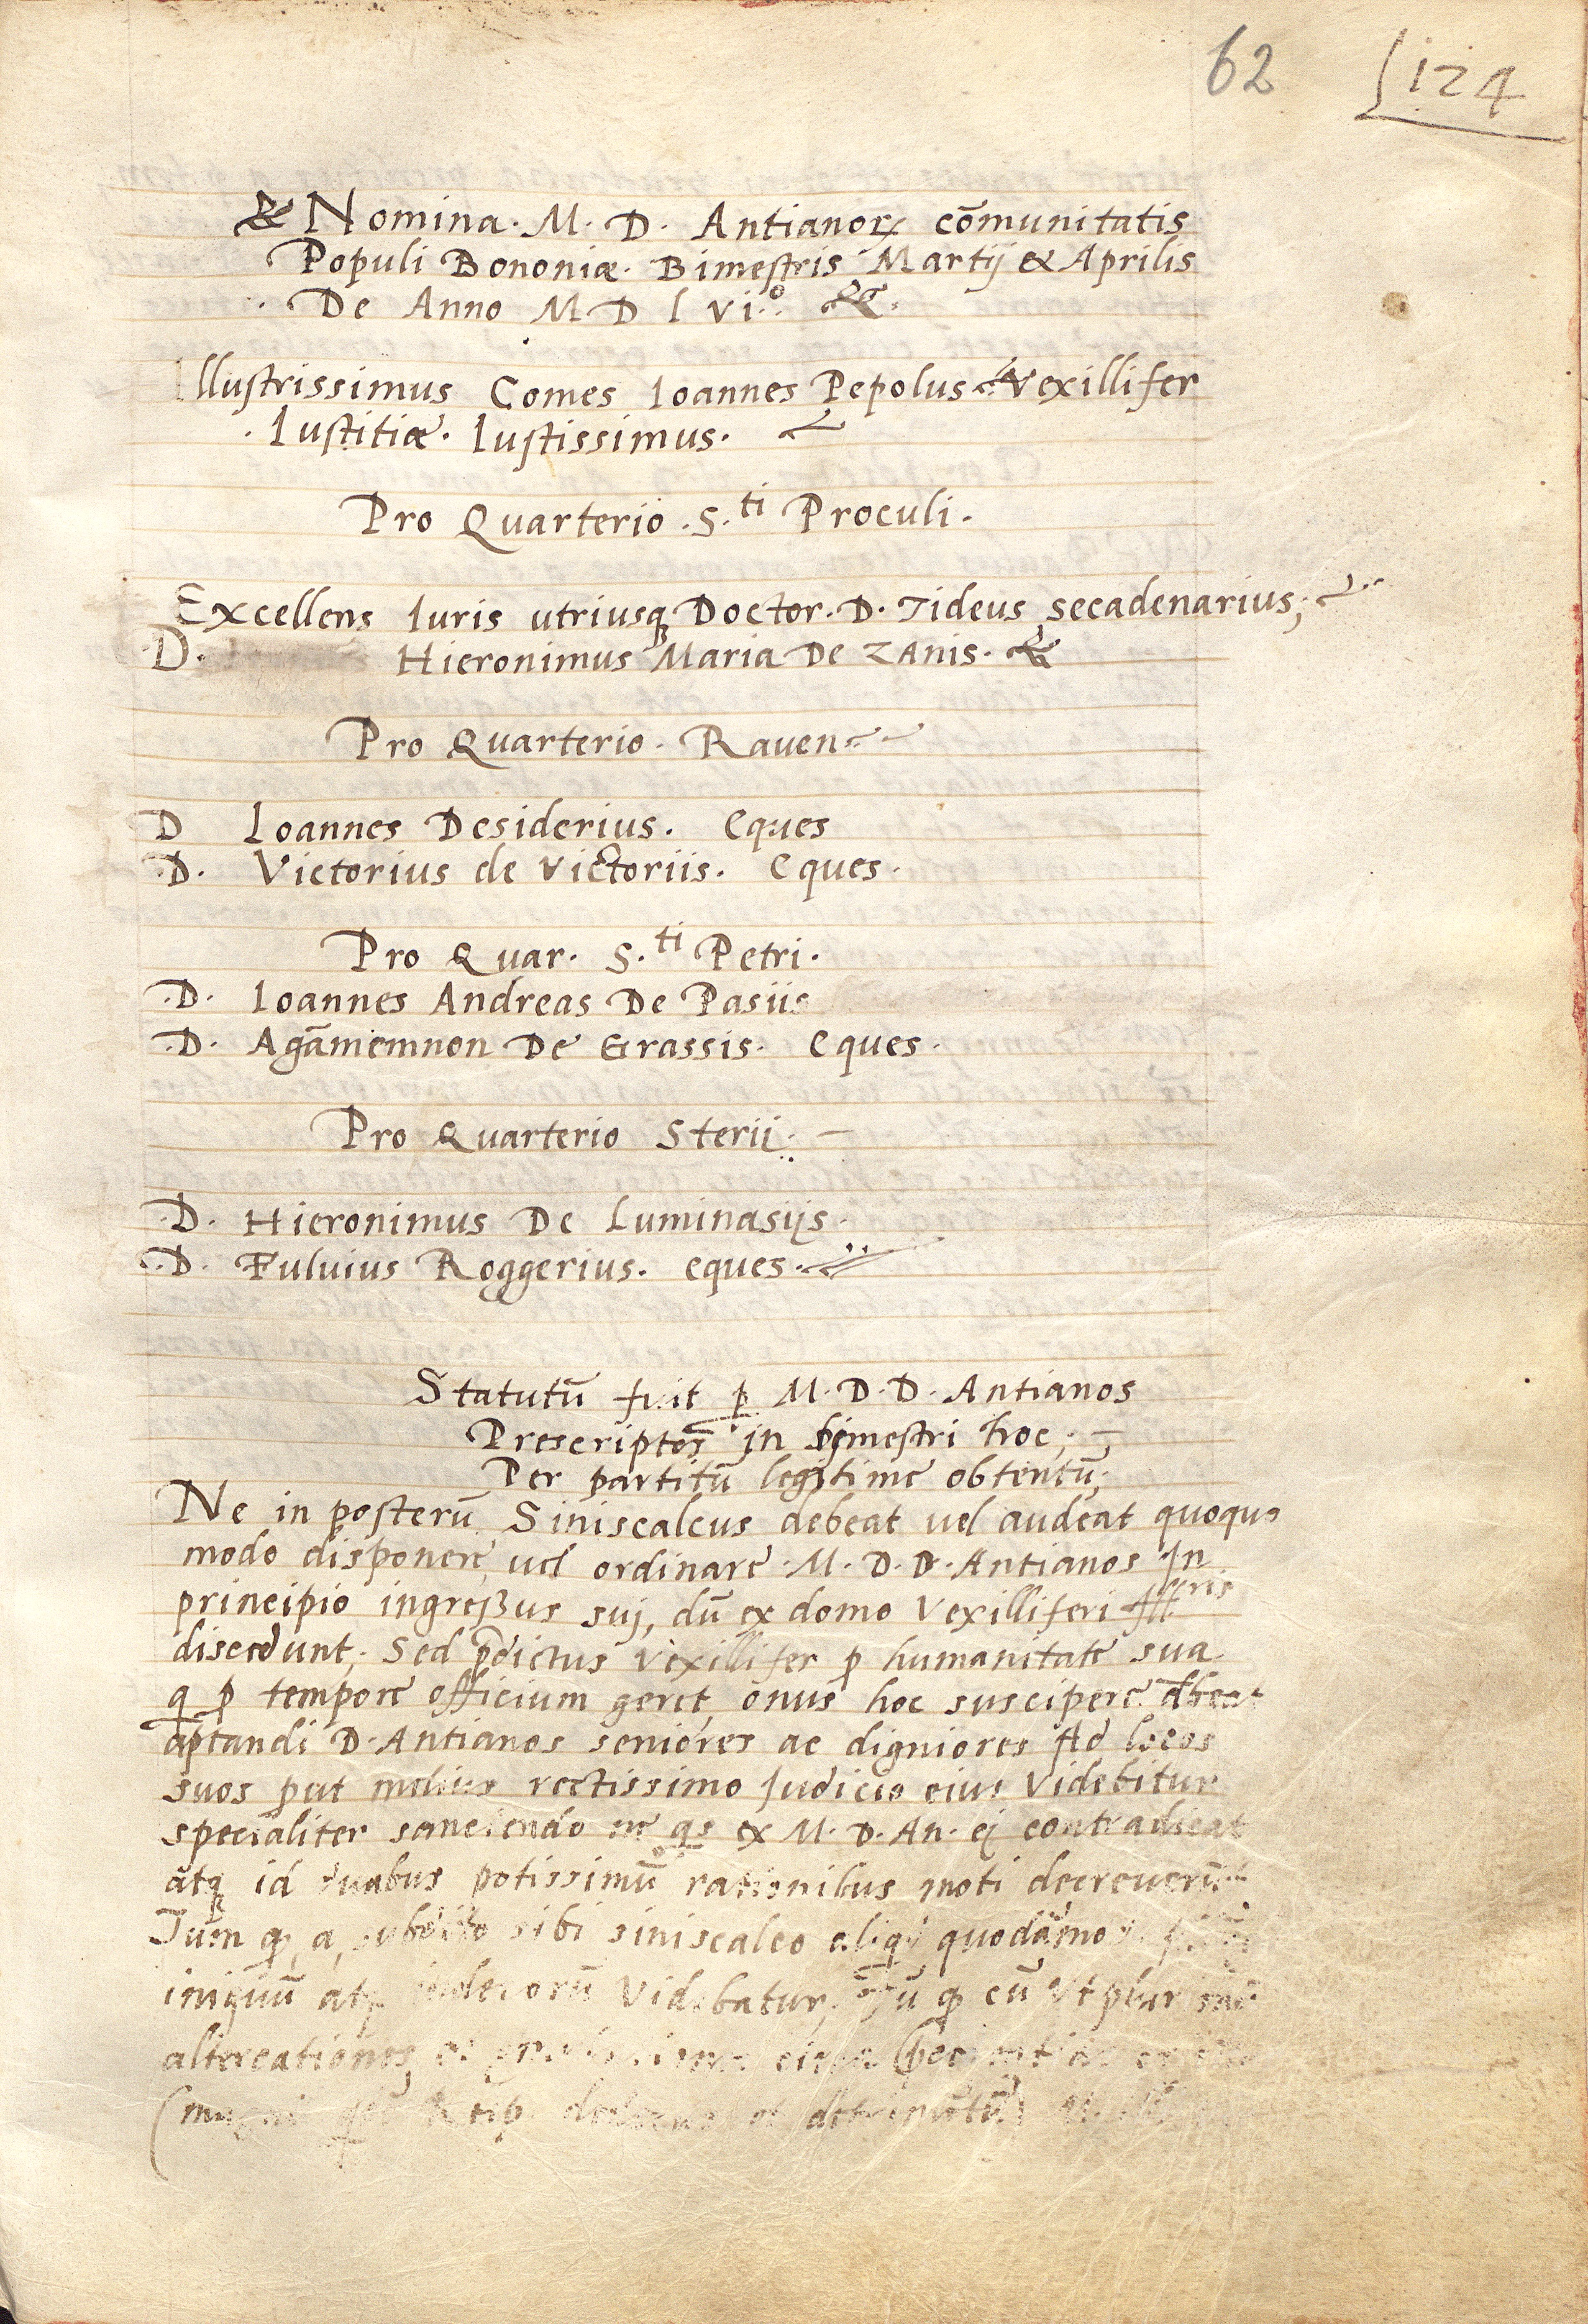 62 124
& Nomina. M. D. Antianoꝝ cōmunitatis
Populi Bononiæ. Bimestris Martij & Aprilis
De Anno M D l vi.º
Illustrissimus Comes Ioannes Pepolus Vexillifer
Iustitiæ. Iustissimus.
Pro Quarterio .S.ti Proculi.
Excellens Iuris utriusq Doctor. D. Tideus secadenarius;
D. Hieronimus Maria De Zanis.
Pro Quarterio. Rauen
D Ioannes Desiderius. Eques
D. Victorius de Victoriis. Eques.
Pro Quar. S.ti Petri.
.D. Ioannes Andreas De Pasiis
.D. Agāmemnon De Grassis. Eques.
Pro Quarterio Sterii.
.D. Hieronimus De Luminasijs.
.D. Fuluius Roggerius. eques.
Statutū fuit ꝑ M. D. D. Antianos
Prescriptos in bimestri hoc;
Per partitū legitime obtentū;
Ne in posterū Siniscalcus debeat uel audeat quoquo
modo disponere, uel ordinare .M. D. D. Antianos In
principio ingreßus suj, dū ex domo Vexilliferi
discedunt; Sed p̄dictus Vexillifer ꝓ humanitate sua
q ꝓ tempore officium geret, onus hoc suscipere dbeat
aptandi D. Antianos seniores ac digniores Ad locos
suos put melius rectissimo Judicio eius Videbitur
specialiter sanciendo ne qs ex M. D. An. ej contradicat
atq id duabus potissimū rationibus moti decreuerūt
Tum q, a, subdito sibi siniscalco quodāmo
iniquū atq indecorū Videbatur, Tū q cū Vt plur
altercationes
detrimētū